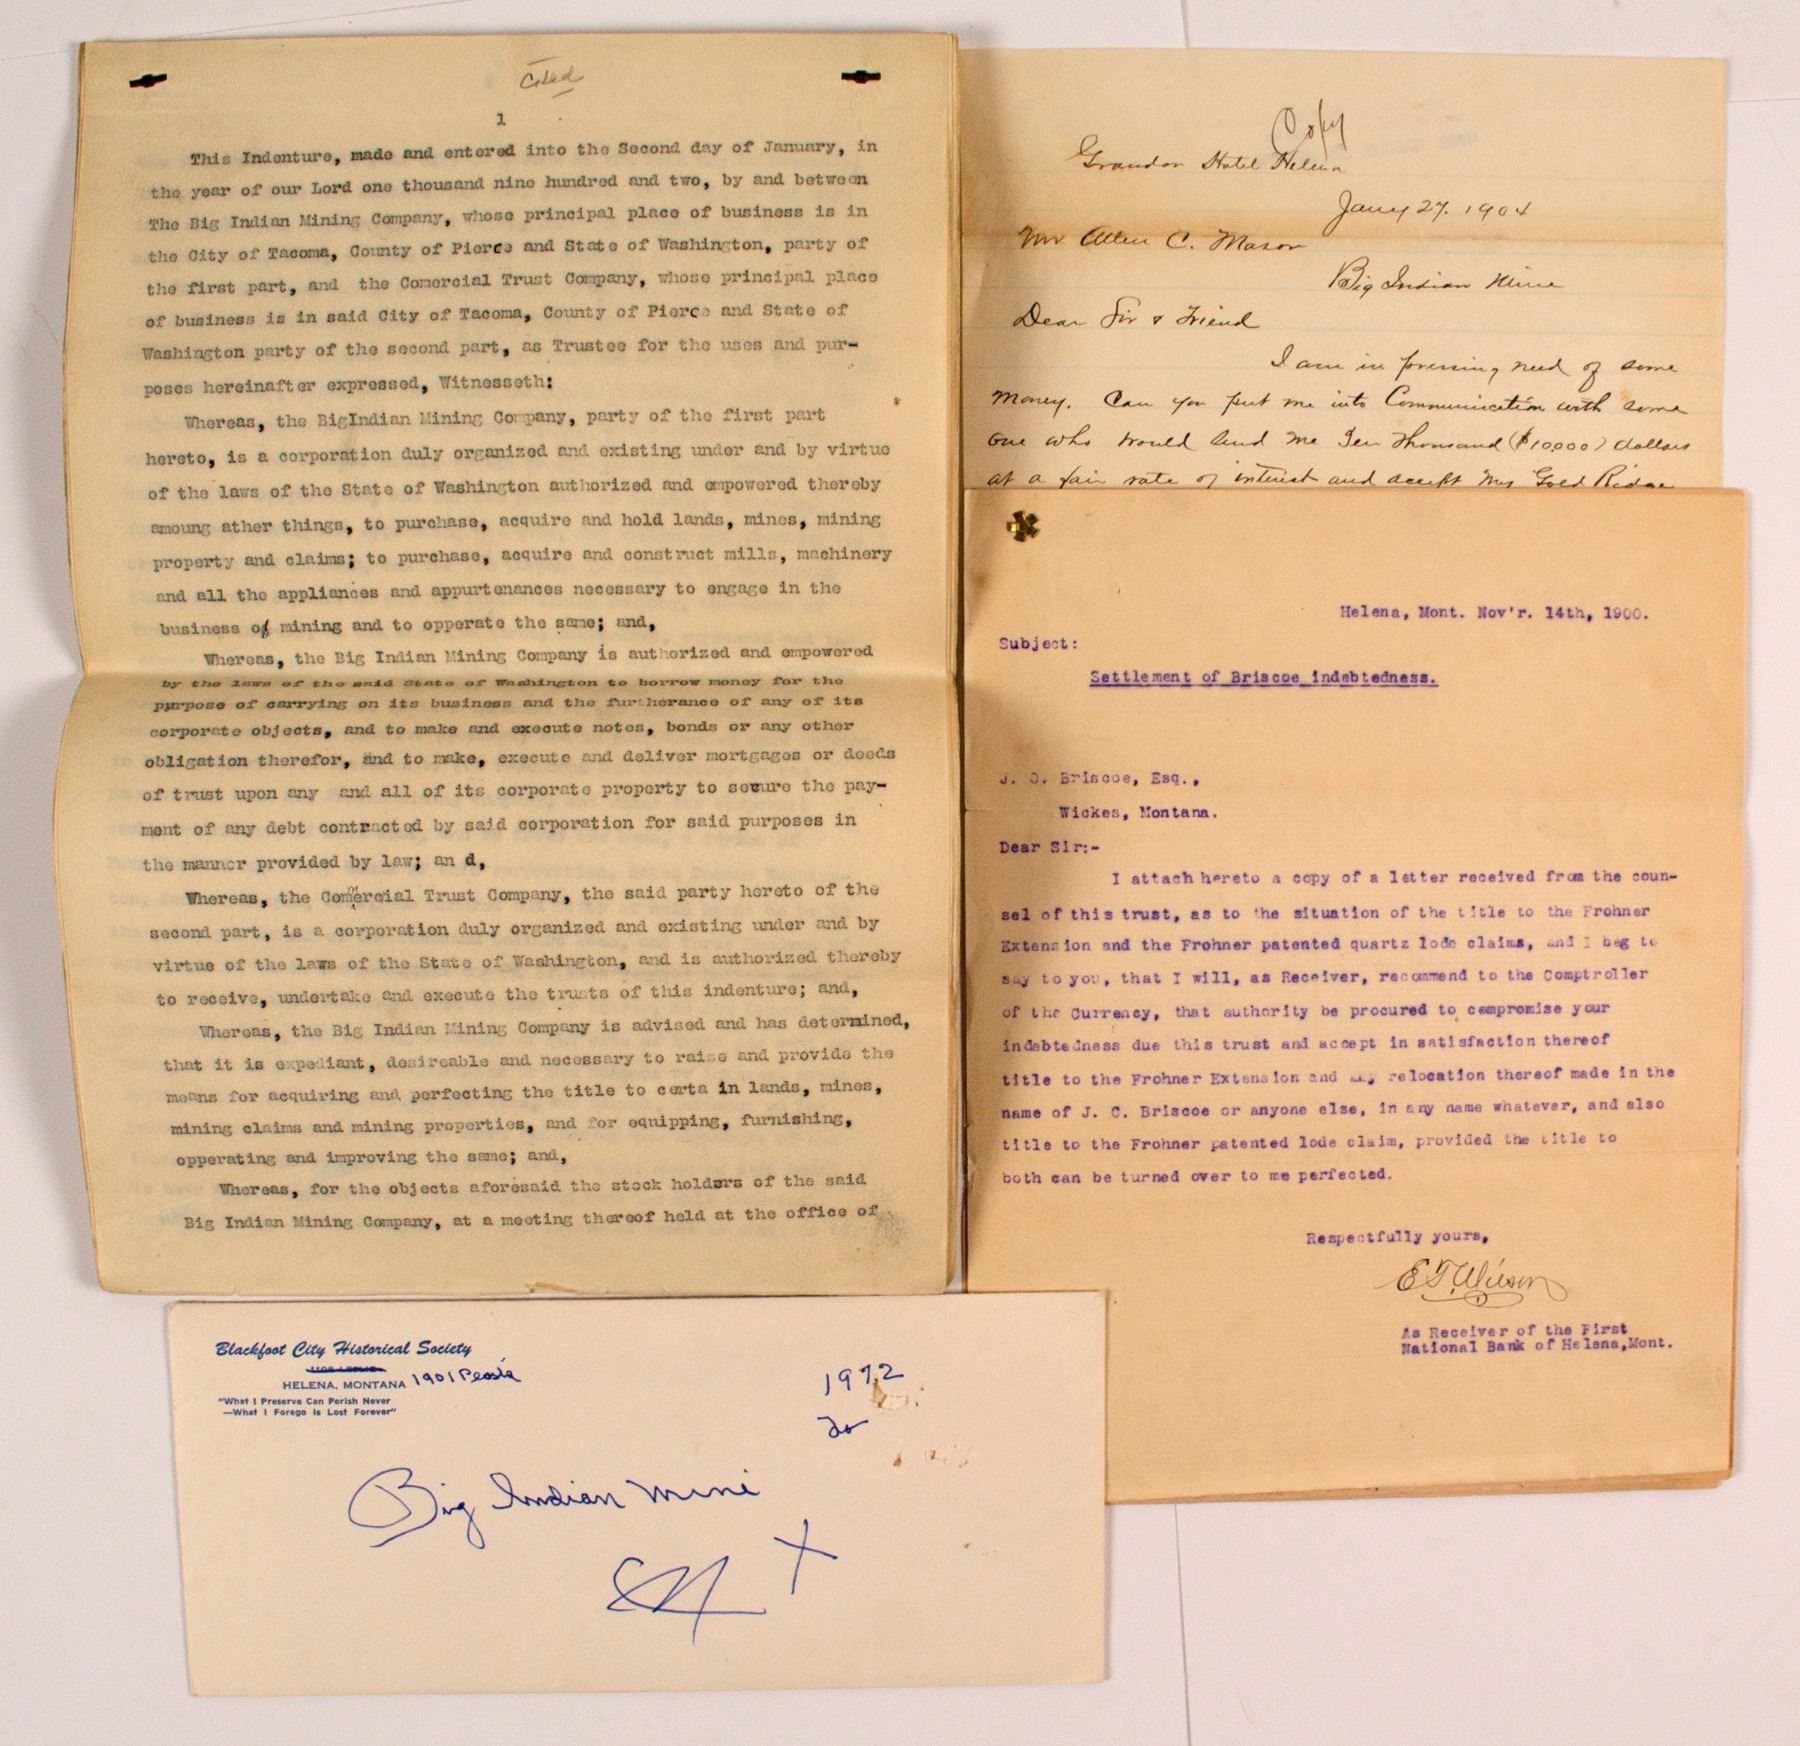 1
This Indenture, made and entered into the Second day of January, in
the year of our Lord one thousand nine hundred and two, by and between
The Big Indian Mining Company, whose principal place of business is in
the City of Tacoma, County of Pierce and State of Washington, party of
the first part, and the Comercial Trust Company, whose principal place
of business is in said City of Tacoma, County of Pierce and State of
Washington party of the second part, as Trustee for the uses and pur-
poses hereinafter expressed, Witnesseth:
Whereas, the BigIndian Mining Company, party of the first part
hereto, is a corporation duly organized and existing under and by virtue
of the laws of the State of Washington authorized and empowered thereby
amoung ather things, to purchase, acquire and hold lands, mines, mining
property and claims; to purchase, acquire and construct mills, machinery
and all the appliances and appurtenances necessary to engage in the
business of mining and to opperate the same; and,
Whereas, the Big Indian Mining Company is authorized and empowered
by the laws of the said State of Washington to borrow money for the
purpose of carrying on its business and the furtherance of any of its
corporate objects, and to make and execute notes, bonds or any other
obligation therefor, and to make, execute and deliver mortgages or deeds
of trust upon any and all of its corporate property to secure the pay-
ment of any debt contracted by said corporation for said purposes in
the manner provided by law; an d,
Whereas, the Commercial Trust Company, the said party hereto of the
second part, is a corporation duly organized and existing under and by
virtue of the laws of the State of Washington, and is authorized thereby
to receive, undertake and execute the trusts of this indenture; and,
Whereas, the Big Indian Mining Company is advised and has determined,
that it is expediant, desireable and necessary to raise and provide the
means for acquiring and perfecting the title to certa in lands, mines,
mining claims and mining properties, and for equipping, furnishing,
opperating and improving the same; and,
Whereas, for the objects aforesaid the stock holders of the said
Big Indian Mining Company, at a meeting thereof held at the office of
Copy
Grandon Hotel Helena
Jany 27. 1904
Mr Allen C. Mason
Big Indian Mine
Dear Sir & Friend
I am in pressing need of some
money. Can you put me into Communication with some
one who would lend me Ten Thousand ($10,000) dollars
at a fair rate of interest and accept my Gold Ridge
Helena, Mont. Nov'r. 14th, 1900.
Subject:
Settlement of Briscoe indebtedness.
J. C. Briscoe, Esq.,
Wickes, Montana.
Dear Sir:-
I attach hereto a copy of a letter received from the coun-
sel of this trust, as to the situation of the title to the Frohner
Extension and the Frohner patented quartz lode claims, and I beg to
say to you, that I will, as Receiver, recommend to the Comptroller
of the Currency, that authority be procured to compromise your
indebtedness due this trust and accept in satisfaction thereof
title to the Frohner Extension and any relocation thereof made in the
name of J. C. Briscoe or anyone else, in any name whatever, and also
title to the Frohner patented lode claim, provided the title to
both can be turned over to me perfected.
Respectfully yours,
E T Wilson
As Receiver of the First
National Bank of Helena, Mont.
Blackfoot City Historical Society
HELENA, MONTANA 1901 Peosta
"What I Preserve Can Perish Never
—What I Forego Is Lost Forever"
1972
Big Indian Mine
X